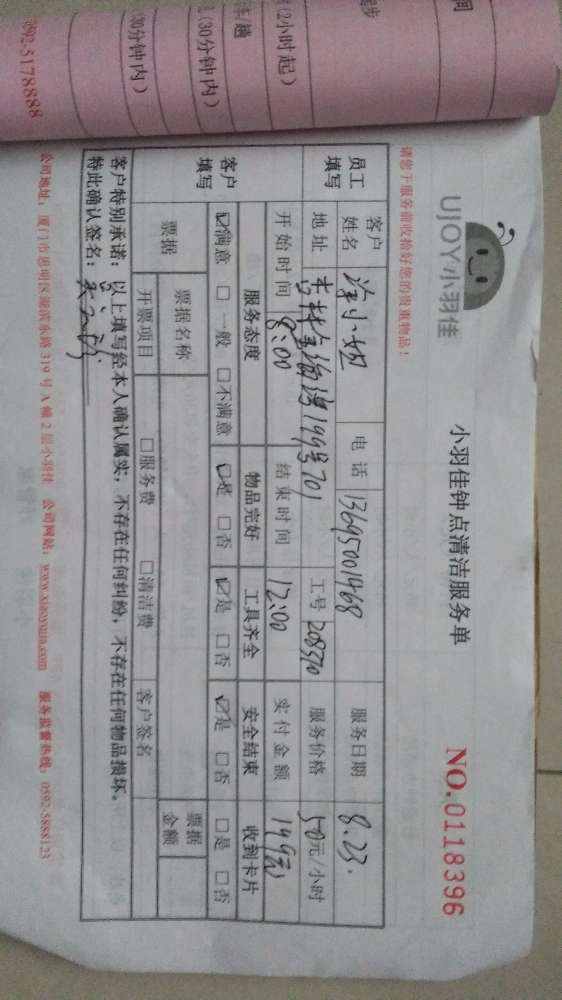 UJOY小羽佳
小羽佳钟点清洁服务单
NO.0118396
请您于服务前收拾好您的贵重物品！
员工填写
客户姓名
小姐
电话
13695001468
服务日期
8.23.
地址
199号701
工号
208370
服务价格
50元/小时
开始时间
8:00
结束时间
12:00
实付金额
149元
客户填写
服务态度
物品完好
工具齐全
安全结束
收到卡片
☑满意 □一般 □不满意
☑是 □否
☑是 □否
☑是 □否
□是 □否
票据
票据名称
票据金额
开票项目
□服务费 □清洁费
客户签名
客户特别承诺：以上填写经本人确认属实，不存在任何纠纷，不存在任何物品损坏。
特此确认签名：
公司地址：厦门市思明区湖滨东路319号A幢2层小羽佳 公司网站：www.xiaoyujia.com 服务监督热线：0592-5888123
(2小时起)
(30分钟内)
(30分钟内)
0592-5178888